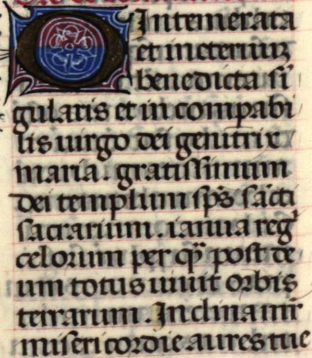 O Intemerata
et ineternuz
benedicta sin
gularis et incompabi
lis uirgo dei genitrix
maria. gratissimum
dei templum sps sancti
sacrarium. ianua reg
celorum per qm post de
um totus uiuit orbis
terrarum. Inclina mr
misericordie aures tue